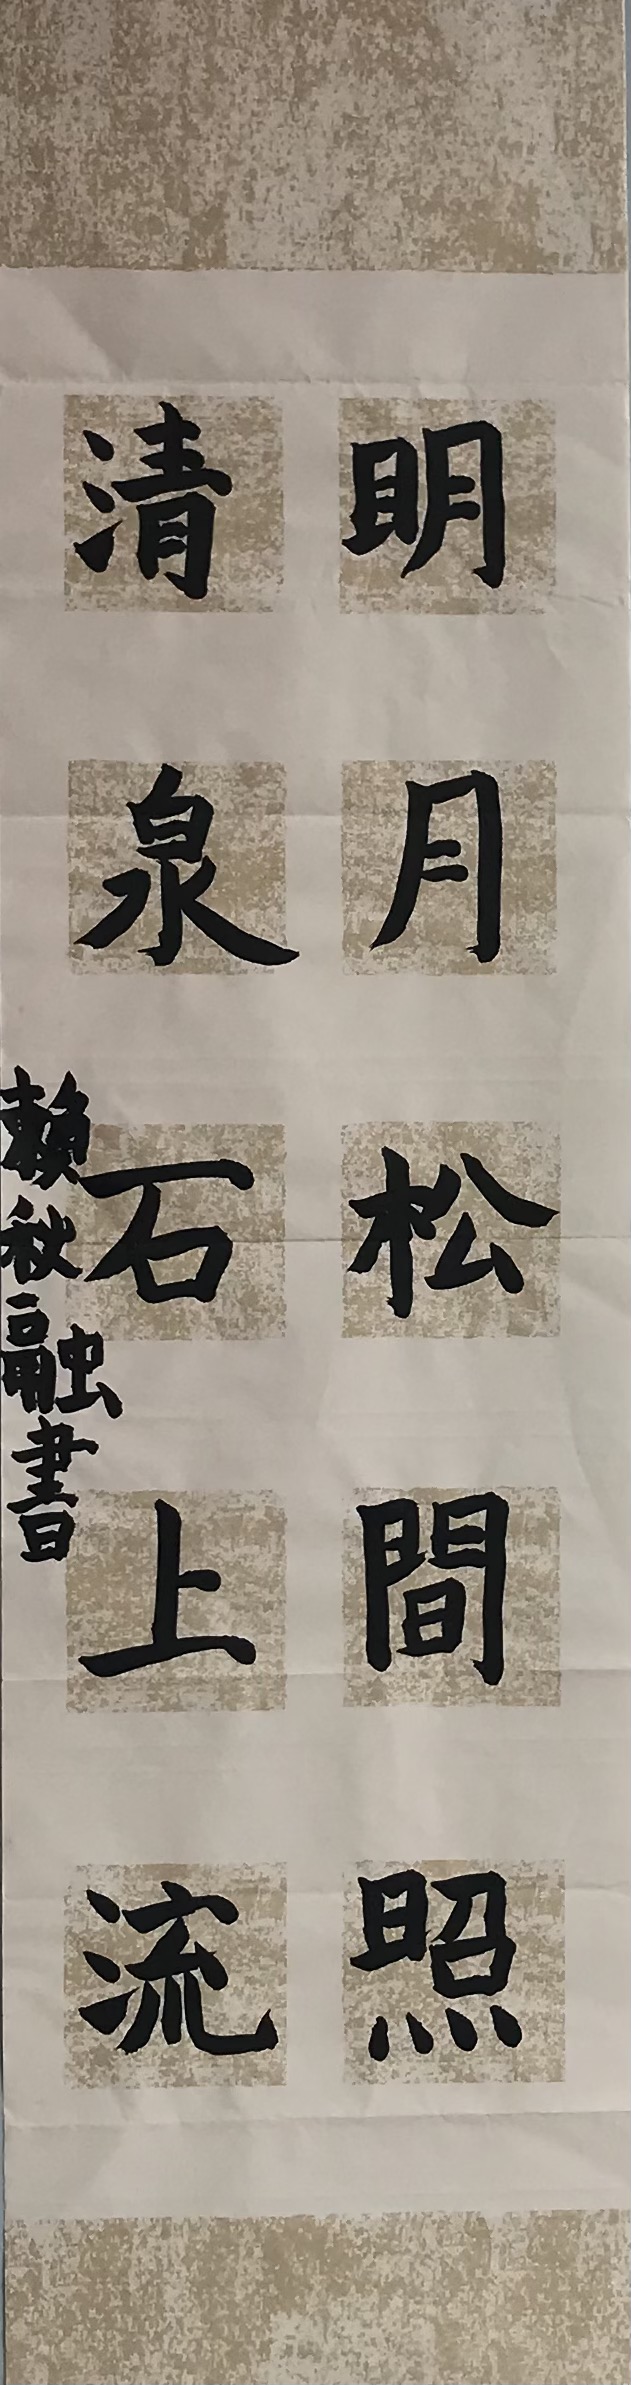 明月松間照
清泉石上流
賴秋融書